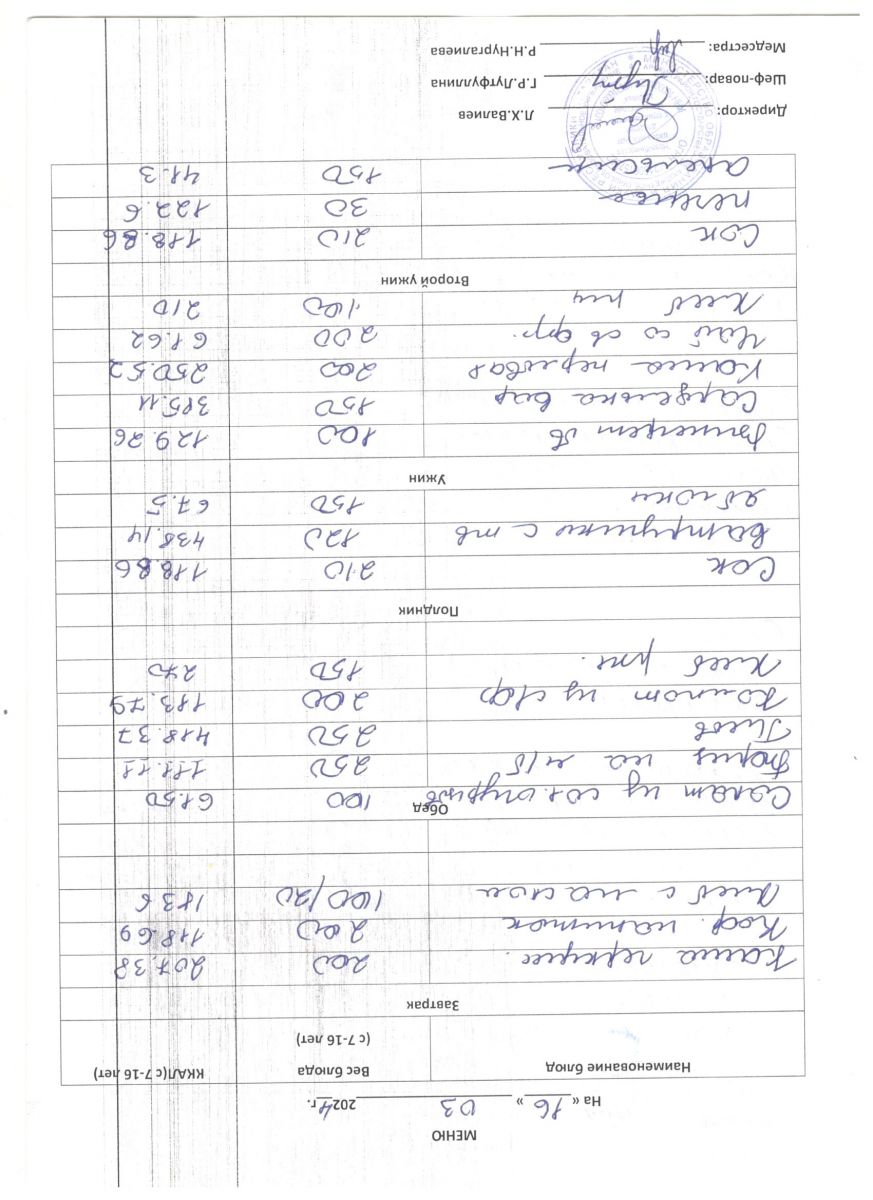 МЕНЮ
На « 16 » 03 2024 г.
Наименование блюд Вес блюда (с 7-16 лет) ККАЛ(с 7-16 лет)
Завтрак
Каша геркулес. 200 207.38
Коф. напиток 200 118.69
Хлеб с масло 100/20 183 6
Обед
Салат из сол. огурцов 100 61.50
Борщ на м/б 250 111.11
Плов 250 418.37
Компот из с/фр 200 113.79
Хлеб рж. 150 270
Полдник
Сок 210 118.86
Ватрушка с тв 120 438.14
яблоки 150 67.5
Ужин
Винегрет ов 100 129.26
Сарделька вар 150 315.11
Каша перловая 200 250.52
Чай со св фр. 200 61.62
Хлеб пш 100 210
Второй ужин
Сок 210 118.86
печенье 30 122.6
апельсин 150 41.3
Директор: Л.Х.Валиев
Шеф-повар: Г.Р.Лутфуллина
Медсестра: Р.Н.Нургалиева